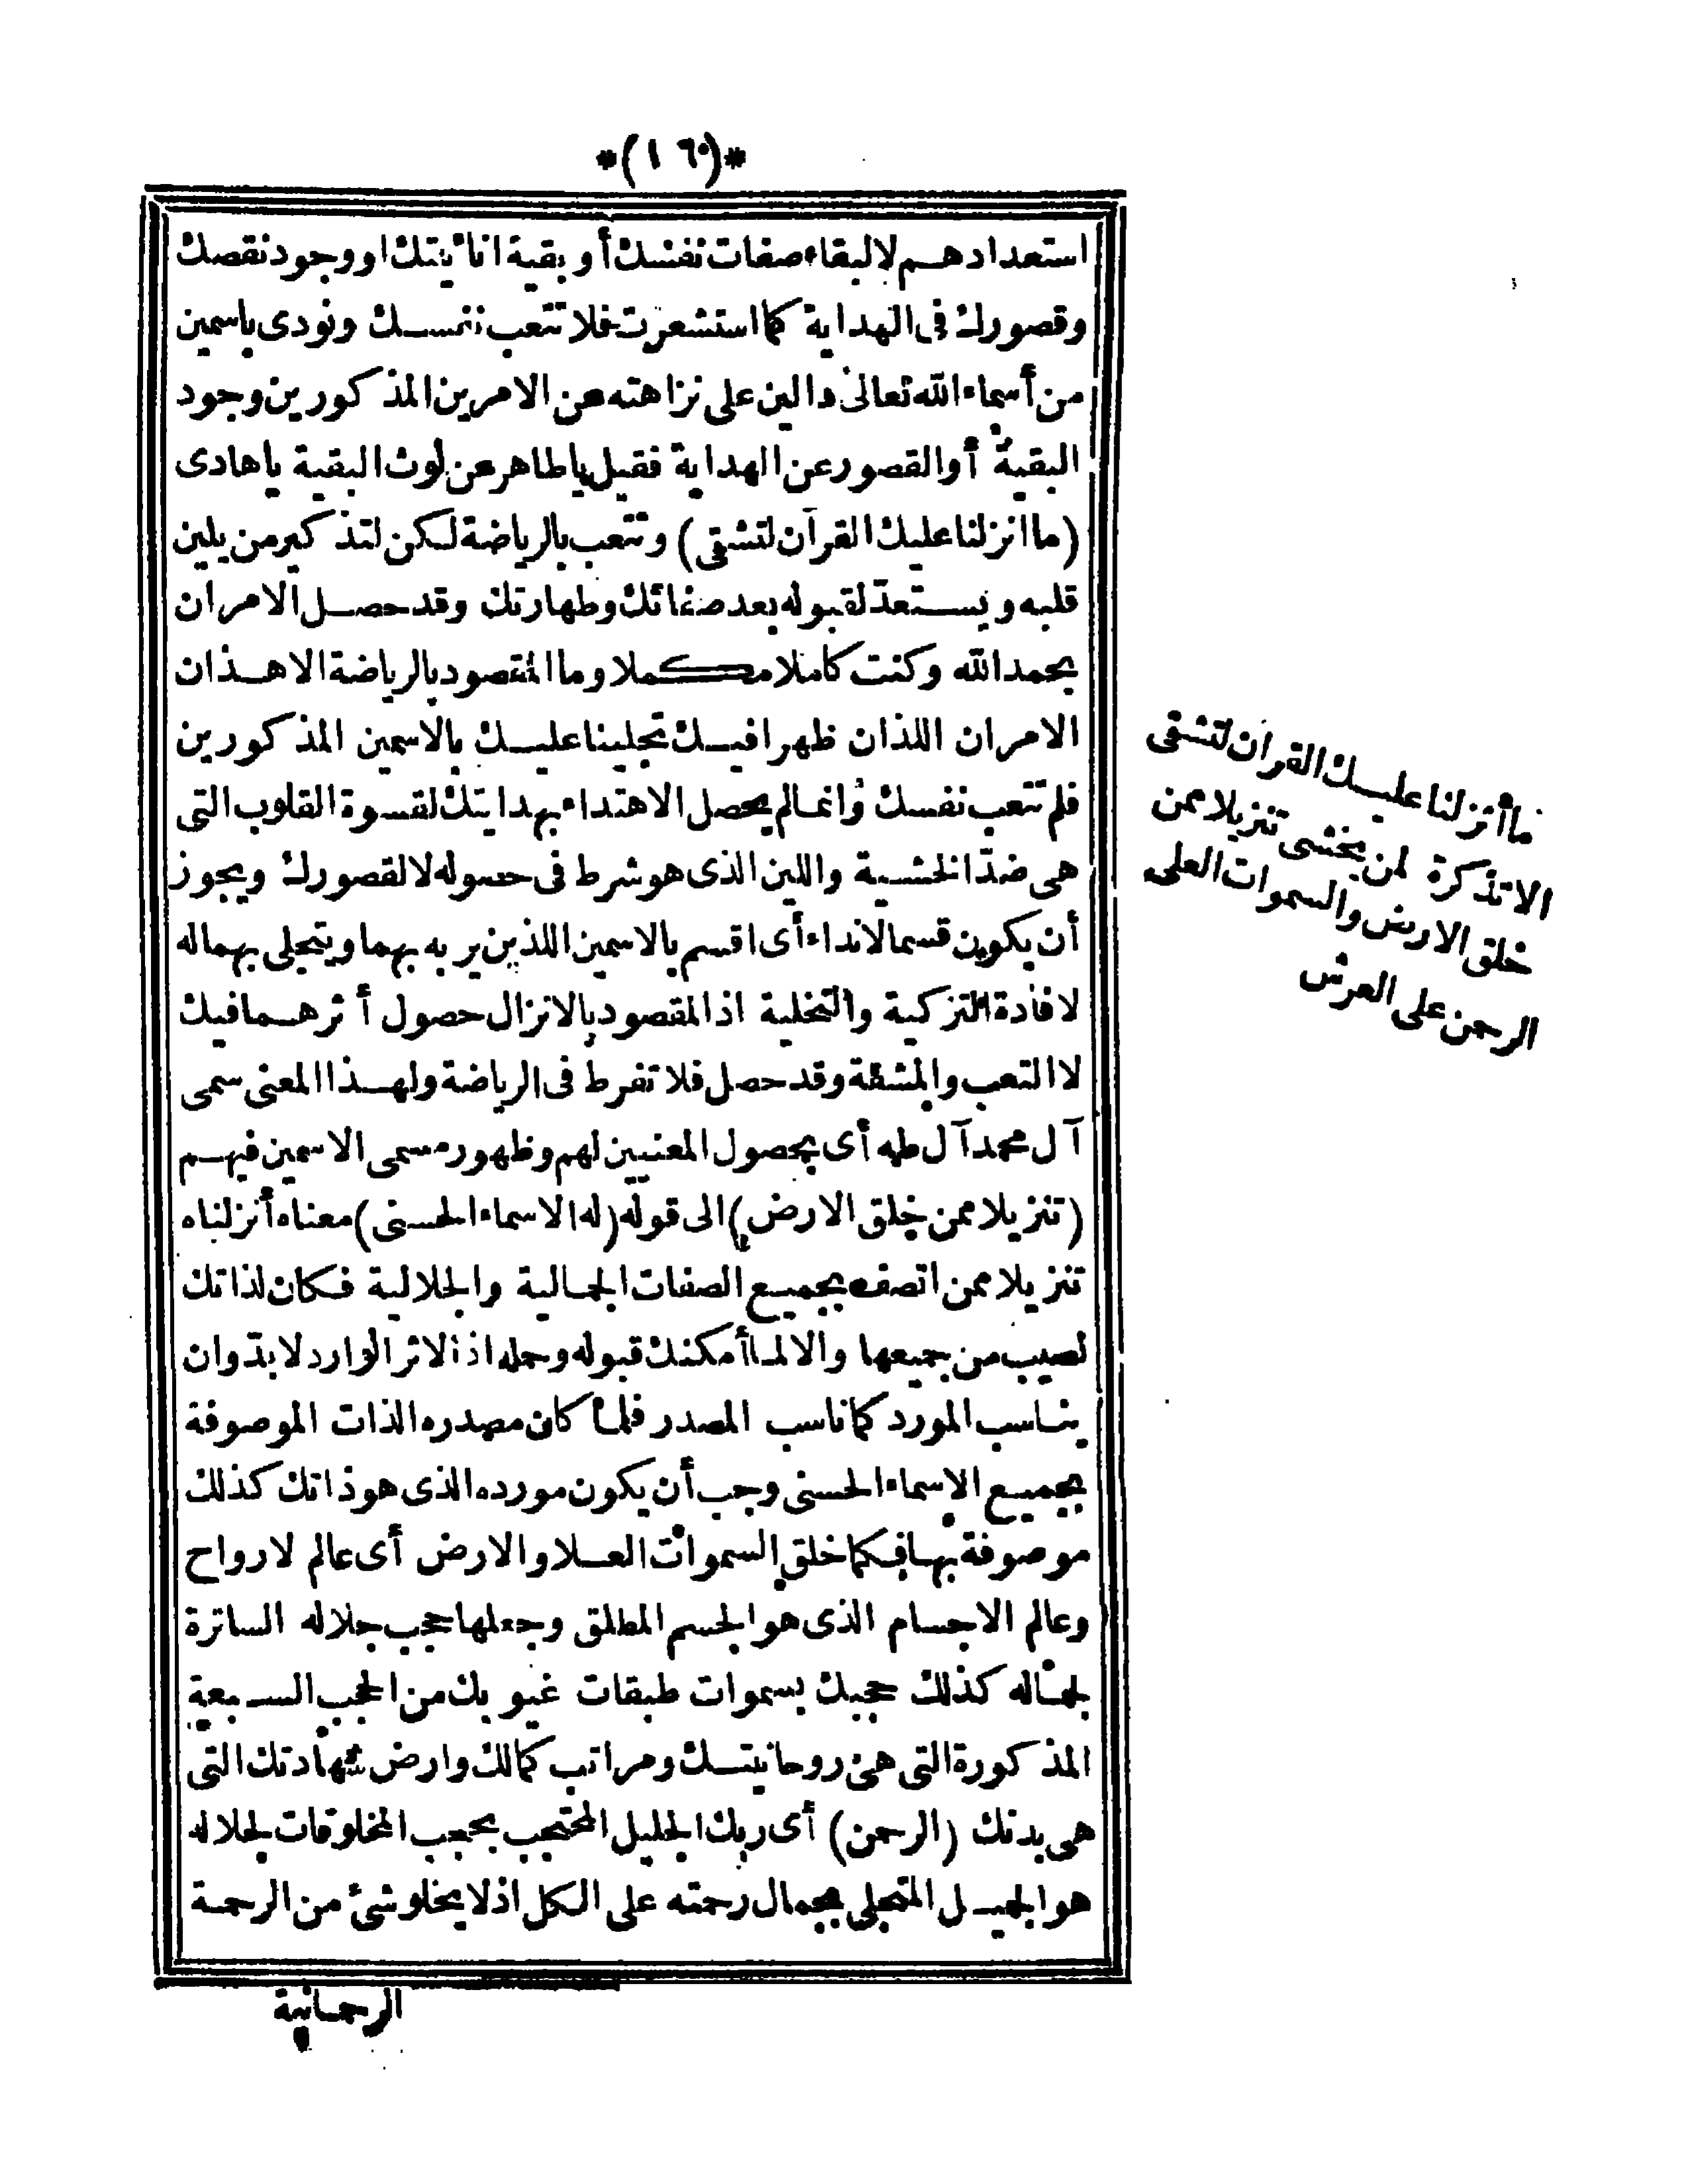 *(١٦٠)*
استعدادهم لا لبقاء صفات نفسك أو بقية انائيتك او وجود نقصك
وقصورك فى الهداية كما استشعرت فلا تتعب نفسك ونودى باسمين
من أسماء الله تعالى دالين على نزاهته عن الامرين المذكورين وجود
البقية أو القصور عن الهداية فقيل يا طاهر عن لوث البقية يا هادى
(ما انزلنا عليك القرآن لتشقى) وتتعب بالرياضة لكن لتذكير من يلين
قلبه ويستعدّ لقبوله بعد صفائك وطهارتك وقد حصل الامران
بحمد الله وكنت كاملا مكملا وما المقصود بالرياضة الا هذان
الامران اللذان ظهرا فيك بتجلينا عليك بالاسمين المذكورين
فلم تتعب نفسك وانما لم يحصل الاهتداء بهدايتك لقسوة القلوب التى
هى ضدّ الخشية واللين الذى هو شرط فى حصوله لا لقصورك ويجوز
أن يكون قسما لا نداء أى اقسم بالاسمين اللذين يربه بهما ويتجلى بهما له
لافادة التزكية والتخلية اذ المقصود بالانزال حصول أثرهما فيك
لا التعب والمشقة وقد حصل فلا تفرط فى الرياضة ولهذا المعنى سمى
آل محمد آل طه أى بحصول المعنيين لهم وظهور مسمى الاسمين فيهم
(تنزيلا ممن خلق الارض) الى قوله (له الاسماء الحسنى) معناه أنزلناه
تنزيلا ممن اتصف بجميع الصفات الجمالية والجلالية فكان لذاتك
نصيب من جميعها والا لما أمكنك قبوله وحمله اذ الاثر الوارد لا بدّ وان
يناسب المورد كما ناسب المصدر فلما كان مصدره الذات الموصوفة
بجميع الاسماء الحسنى وجب أن يكون مورده الذى هو ذاتك كذلك
موصوفة بها فكما خلق السموات العلا والارض أى عالم لارواح
وعالم الاجسام الذى هو الجسم المطلق وجعلها حجب جلاله الساترة
لجماله كذلك حجبك بسموات طبقات غيوبك من الحجب السبعة
المذكورة التى هى روحانيتك ومراتب كمالك وارض شهادتك التى
هى بدنك (الرحمن) أى ربك الجليل المحتجب بحجب المخلوقات لجلاله
هو الجميل المتجلى بجمال رحمته على الكل اذ لا يخلو شئ من الرحمة
الرحمانية
ما أنزلنا عليك القرآن لتشقى
الا تذكرة لمن يخشى تنزيلا ممن
خلق الارض والسموات العلى
الرحمن على العرش